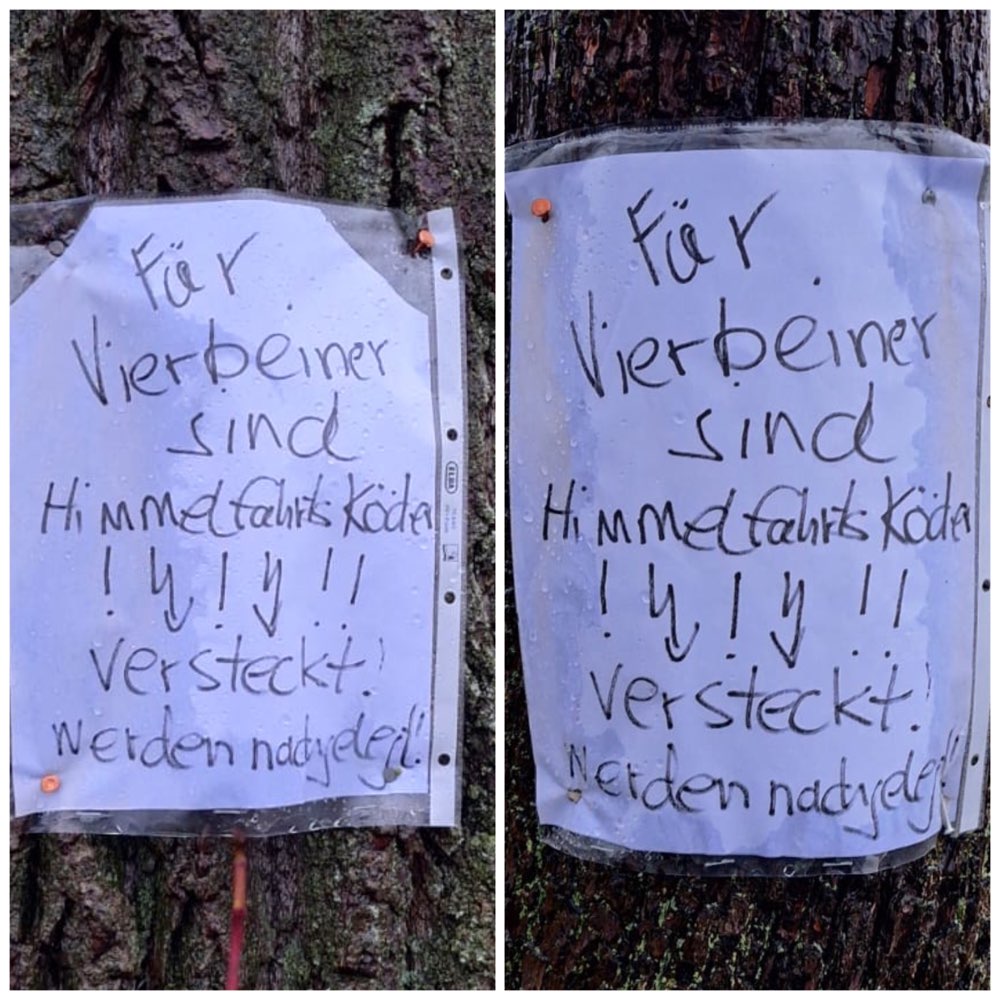 Für
Vierbeiner
sind
Himmelfahrts Köder
! ↯ ! ↯ ! !
versteckt!
werden nachgelegt!
ELBA
Für
Vierbeiner
sind
Himmelfahrts Köder
! ↯ ! ↯ ! !
versteckt!
Werden nachgelegt!